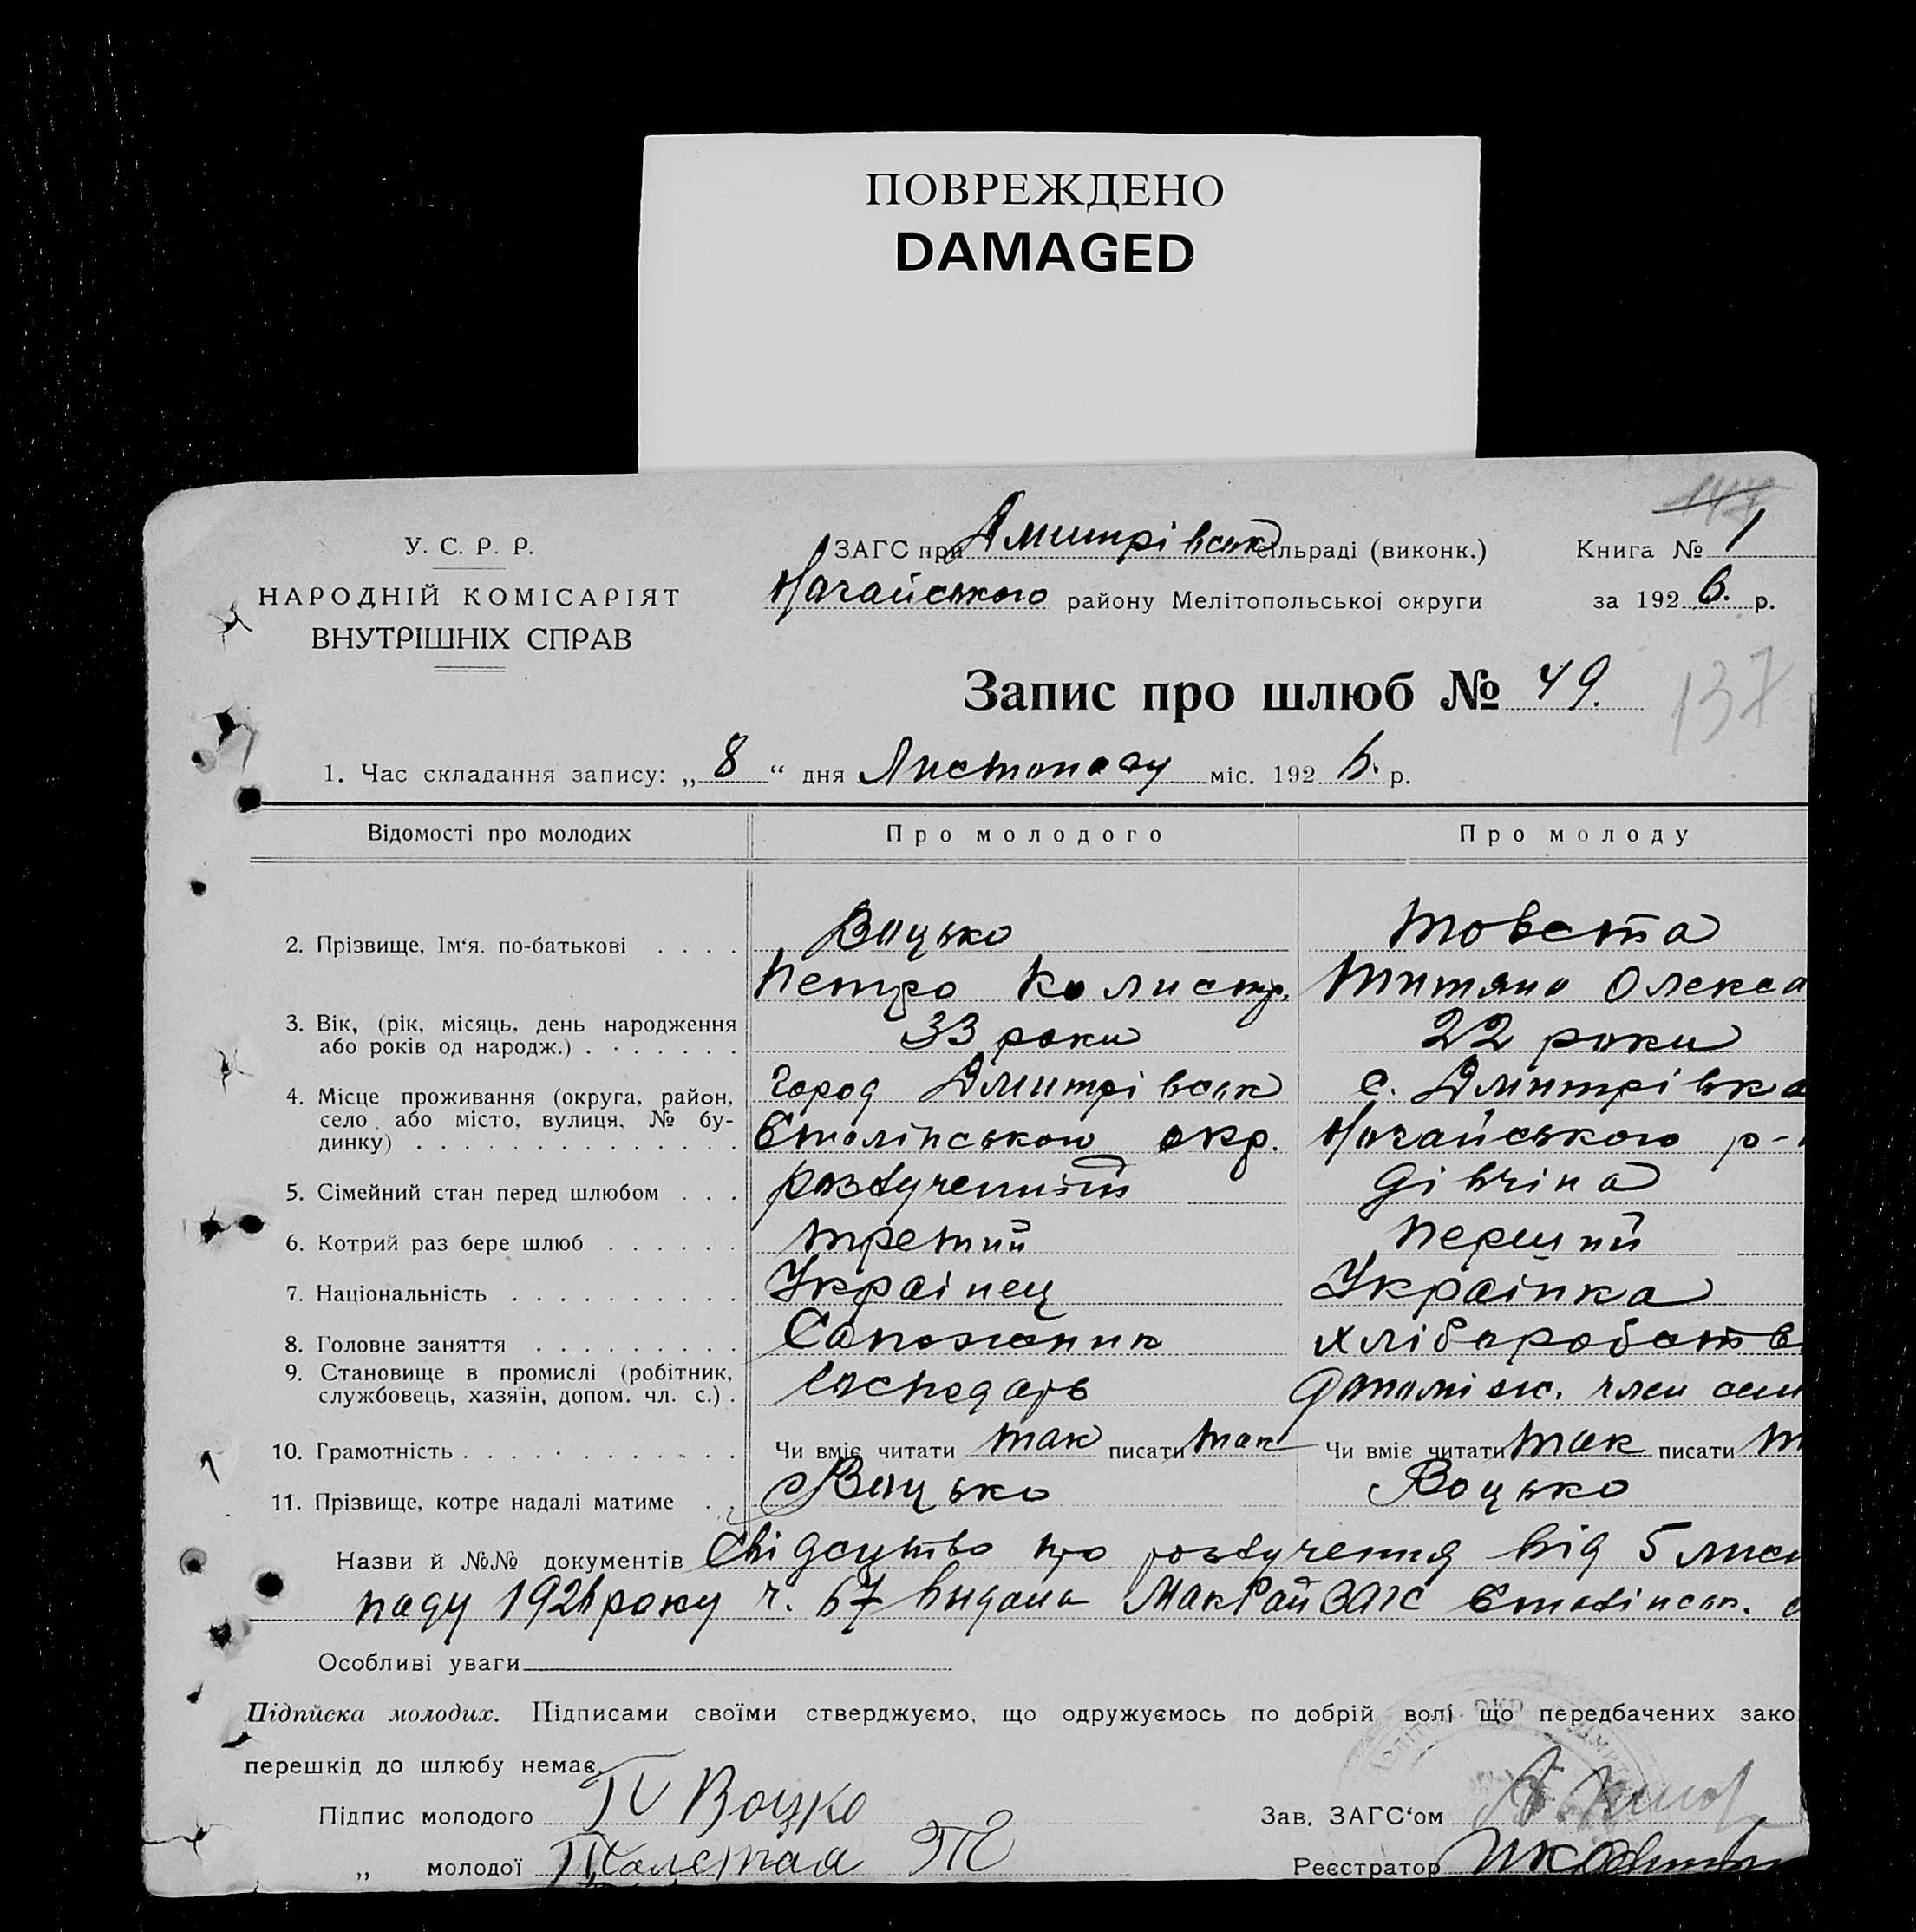 ПОВРЕЖДЕНО
DAMAGED
У. С. Р. Р.
НАРОДНІЙ КОМІСАРІЯТ
ВНУТРІШНІХ СПРАВ
ЗАГС при Дмитрівськ сільраді (виконк.)
Начайського району Мелітопольської округи
Книга № 1
за 1926. р.
Запис про шлюб № 49.
137
1. Час складання запису: „ 8 “ дня Листопаду міс. 1926. р.
Відомості про молодих Про молодого Про молоду
2. Прізвище, Ім‘я. по-батькові . . . . Воцько Товста
Петро Калистр. Титяна Олекса
3. Вік, (рік, місяць, день народження
або років од народж.) . . . . . . . 33 роки 22 роки
4. Місце проживання (округа, район, город Дмитрівськ с. Дмитрівка
село або місто, вулиця, № бу-
динку) . . . . . . . . . . . . . . Сталінського окр. Начайського р-
5. Сімейний стан перед шлюбом . . . розлученний дівчіна
6. Котрий раз бере шлюб . . . . . . третий первий
7. Національність . . . . . . . . . . Українец Українка
8. Головне заняття . . . . . . . . . Сапожник хлібаробств
9. Становище в промислі (робітник,
службовець, хазяїн, допом. чл. с.) . Господарь допоміж. член сем
10. Грамотність . . . . . . . . . . . . Чи вміє читати так писати так Чи вміє читати так писати т
11. Прізвище, котре надалі матиме . . Воцько Воцько
Назви й №№ документів Свідоцтво про розлучення від 5 лист
паду 1926 року ч. 67 видана МакРайЗАГС Сталінськ.
Особливі уваги
Підпйска молодих. Підписами своїми стверджуємо, що одружуємось по добрій волі що передбачених зако
перешкід до шлюбу немає.
Підпис молодого П Воцко
Зав. ЗАГС‘ом
„ молодої Толстая ТЕ
Реєстратор